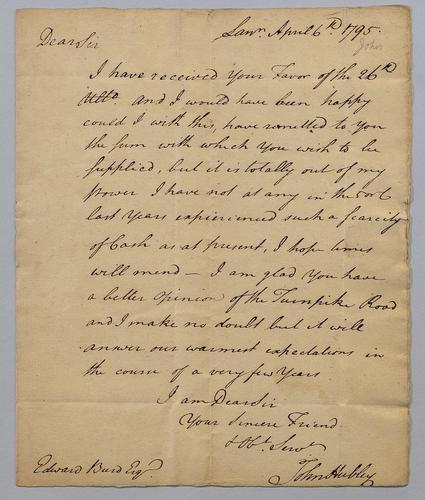 Lanr. April 6th. 1795.
John
Dear Sir
I have received Your Favor of the 26th
Ulto. And I would have been happy
could I with this, have remitted to you
the sum with which You wish to be
supplied, but it is totally out of my
power I have not at any in the 5 or 6
last Years experienced such a scarcity
of Cash as at present, I hope times
will mend — I am glad You have
a better opinion of the Turnpike Road
and I make no doubt but it will
answer our warmest expectations in
the course of a very few Years
I am Dear Sir
Your Sincere Friend
& Obt. Servt.
John Hubley
Edward Burd Esqr.